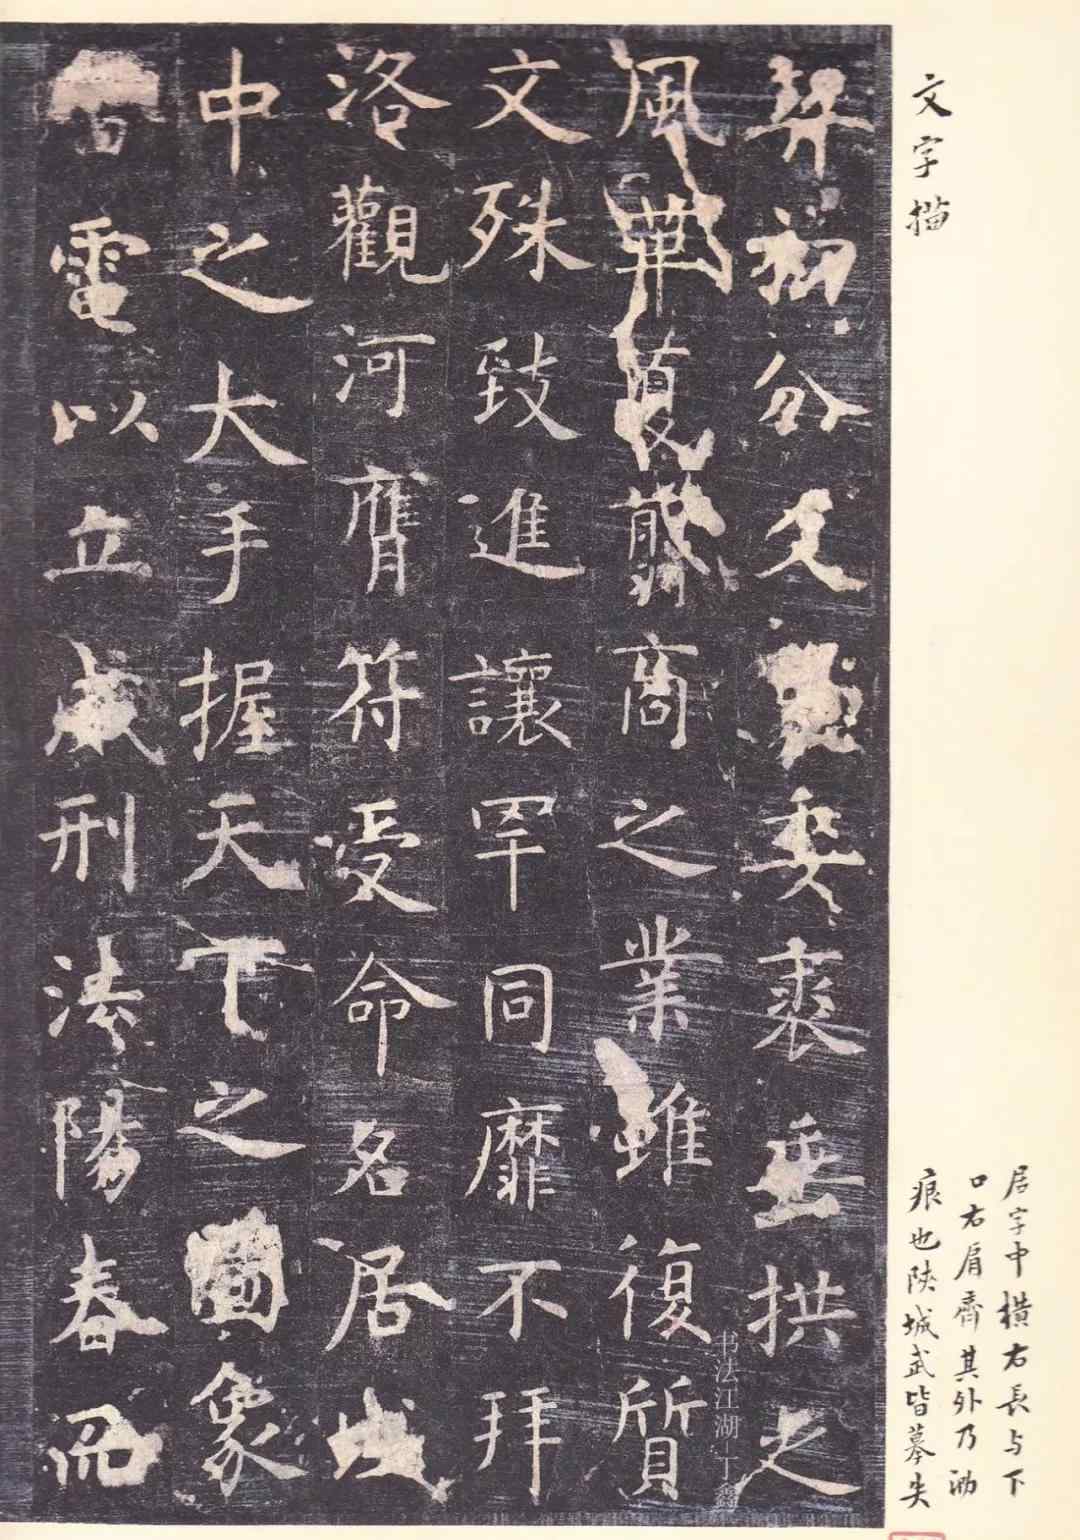 文字描
居字中橫右長与下
口右肩齊其外乃泐
痕也陝城武皆摹失
契初分文象委裘垂拱之
風革夏翦商之業雖復質
文殊致進讓罕同靡不拜
洛觀河膺符受命名居域
中之大手握天下之圖象
雷電以立威刑法陽春而
书法江湖-丁鑫